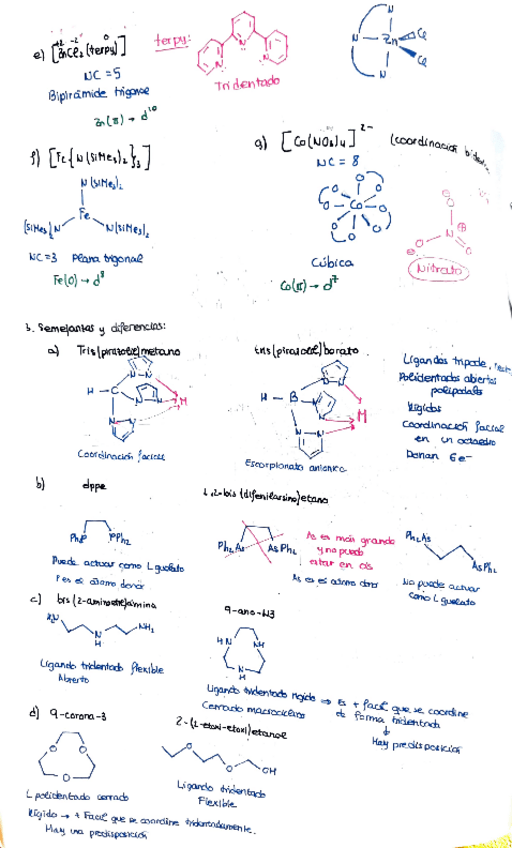 e) [ZnCl2 (terpy)]
+2 -2 0
terpy:
NC = 5
Bipirámide trigonal
Zn(II) → d10
Tridentado
N
N
N
Zn
Cl
Cl
f) [Fe{N(SiMe3)2}3]
N(SiMe3)2
Fe
(SiMe3)2N
N(SiMe3)2
NC=3 Plana trigonal
Fe(0) → d8
g) [Co(NO3)4]2-
(coordinación
NC = 8
Co
Cúbica
Co(II) → d7
Nitrato
3. Semejanzas y diferencias:
a) Tris(pirazolil)metano
H - C
M
Coordinación facial
tris(pirazolil)borato
H - B
M
Escorpionato aniónico
Ligandos trípode,
Polidentados abiertos
polipodales
Rígidos
Coordinación facial
en un octaedro
Donan 6e-
b) dppe
Ph2P
PPh2
Puede actuar como L quelato
P es el átomo donor
1,2-bis(difenilarsino)etano
Ph2As
AsPh2
As es más grande
y no puede
estar en cis
As es el átomo donor
Ph2As
AsPh2
No puede actuar
como L quelato
c) bis(2-aminoetil)amina
H2N
N
H
NH2
Ligando tridentado flexible
Abierto
9-ano-N3
HN
NH
N
H
Ligando tridentado rígido → Es + fácil que se coordine
Cerrado macrocíclico
de forma tridentada
Hay predisposición
d) 9-corona-3
O
O
O
L polidentado cerrado
Rígido → + Fácil que se coordine tridentadamente.
Hay una predisposición
2-(2-etoxi-etoxi)etanol
O
O
OH
Ligando tridentado
Flexible